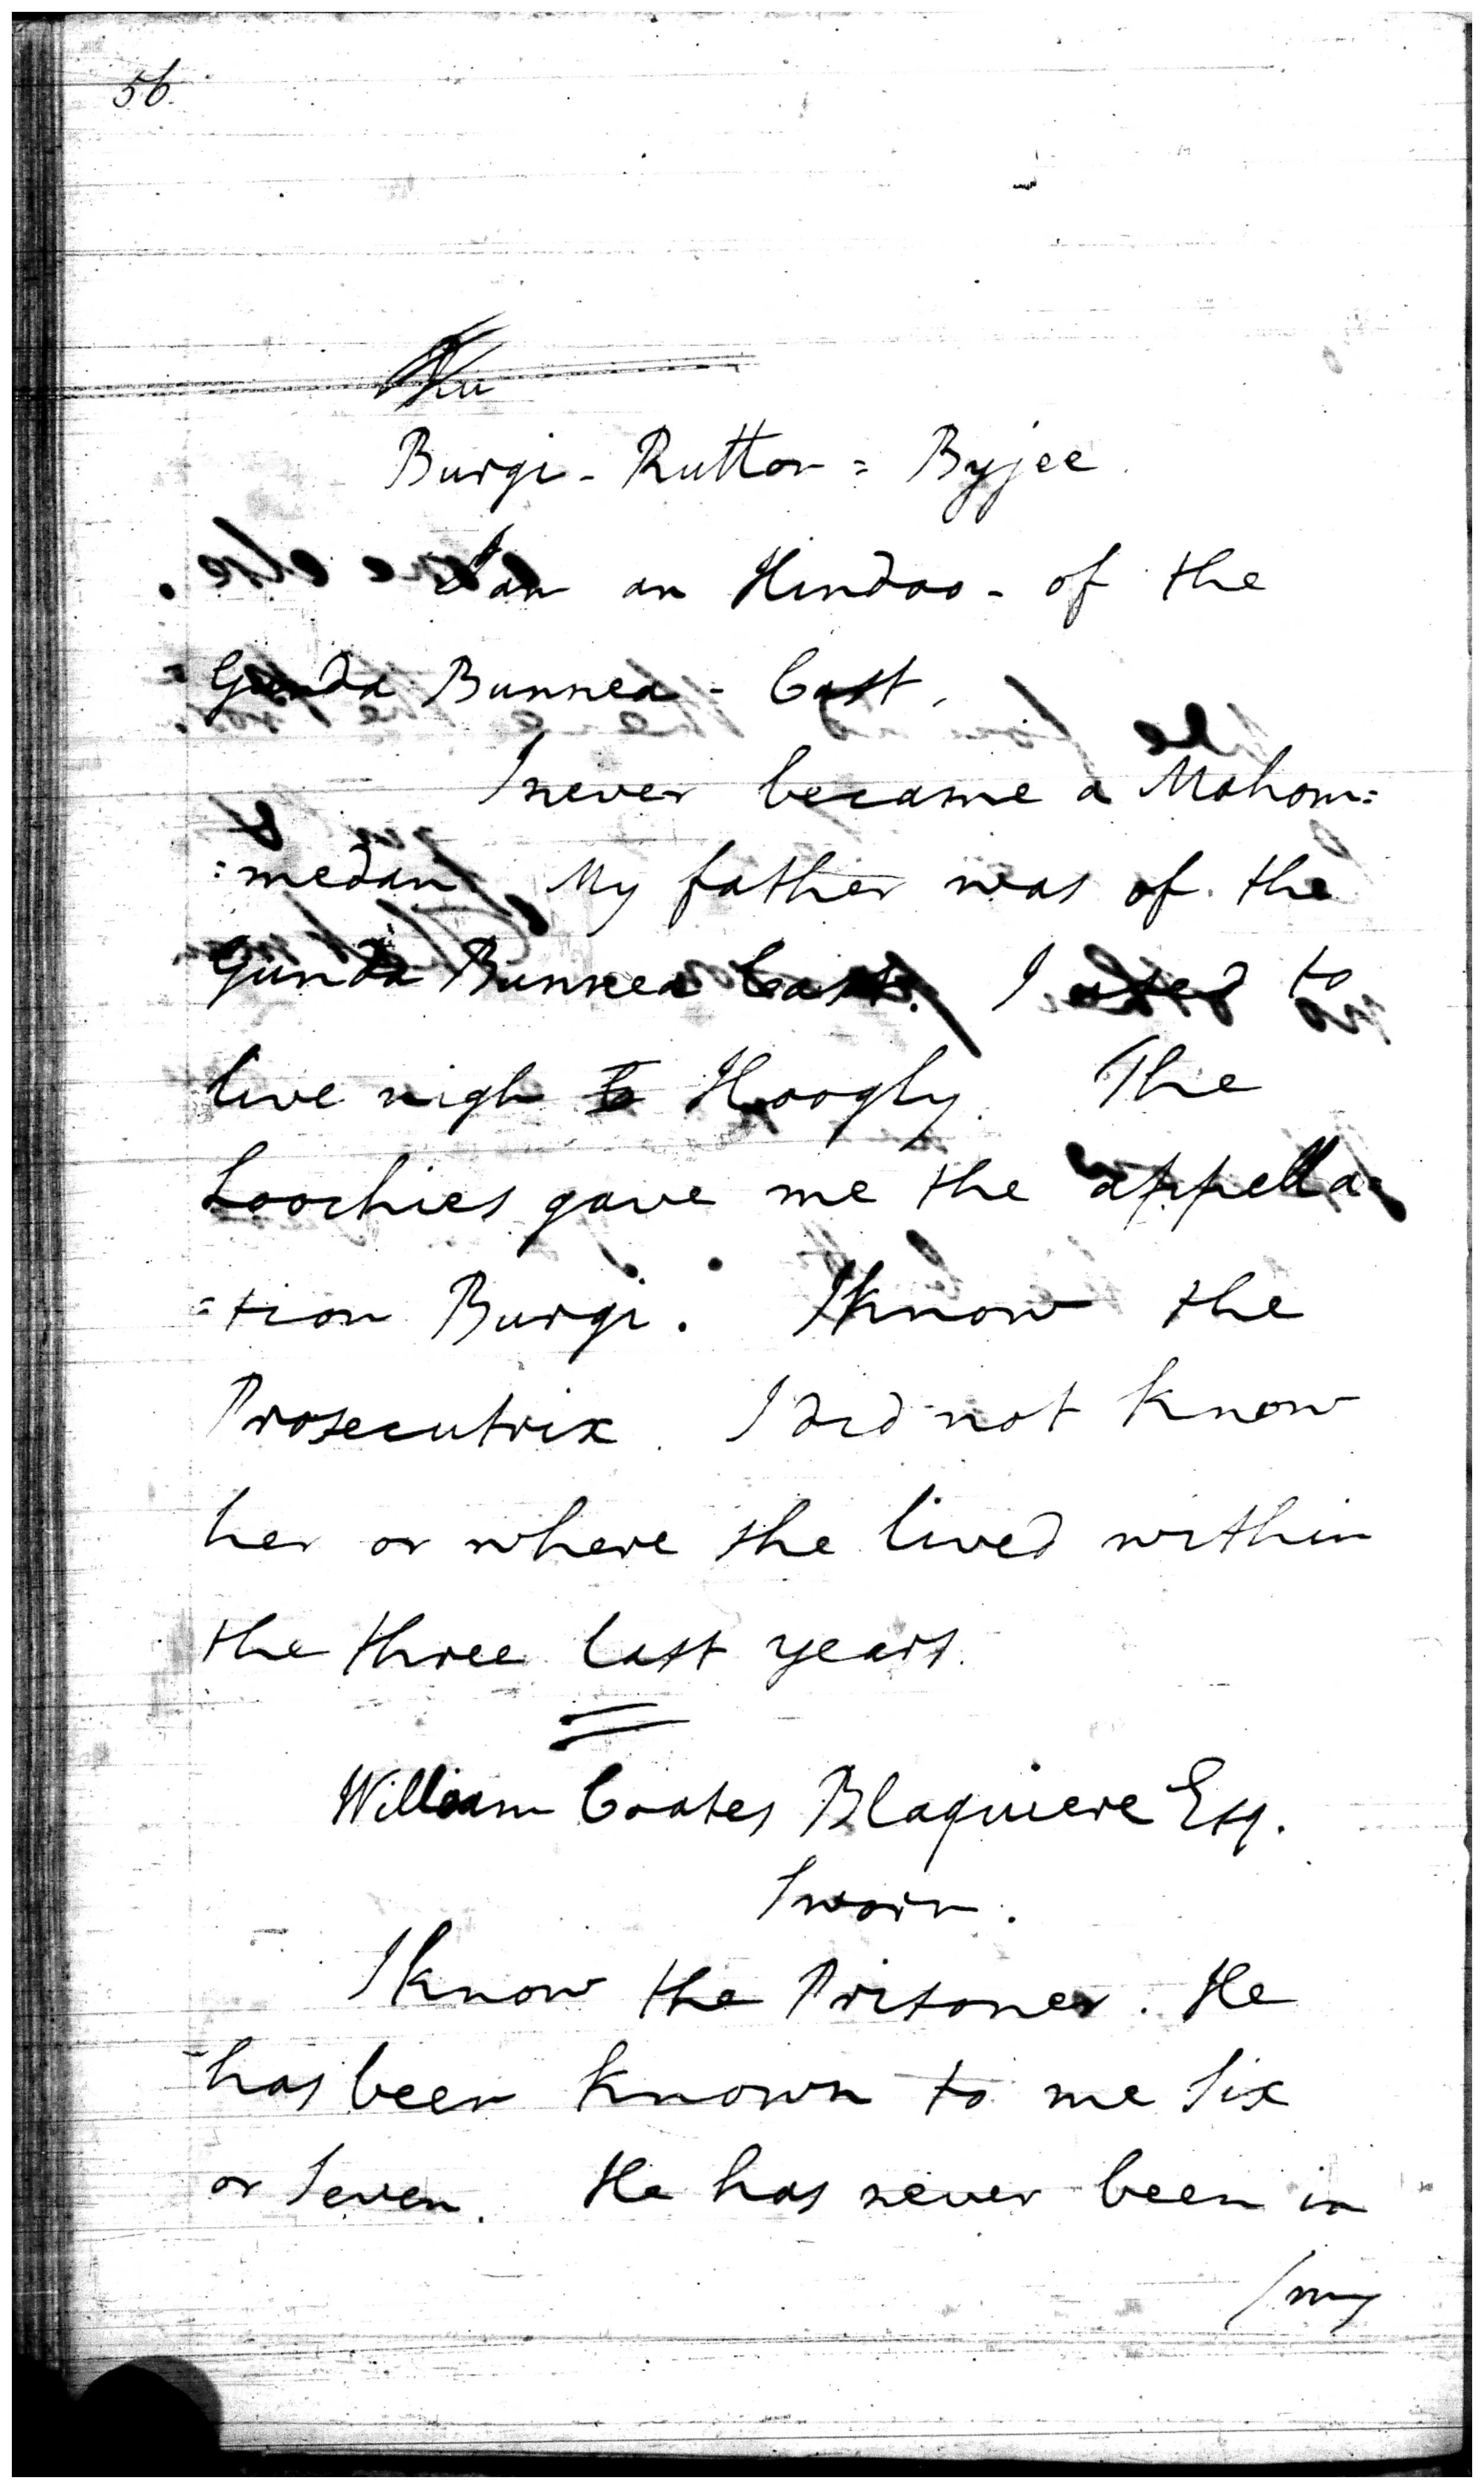 56.
Burgi - Rutton = Byjee.
I am an Hindoo - of the
Gunda Bunnea - Cast.
I never became a Mahom=
=medan. My father was of the
Gunda Bunnea Cast. I used to
live nigh to Hoogly. The
Loochies gave me the appella=
=tion Burgi. I know the
Prosecutrix. I did not know
her or where she lived within
the three last years.
William Coates Blaquiere Esq.
Sworn.
I know the Prisoner. He
has been known to me Six
or Seven. He has never been in
/my